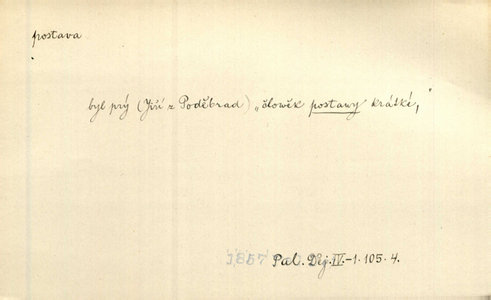 postava
byl prý (Jiří z Poděbrad) „člověk postawy krátké,"
1857 Pal. Děj. IV.-1. 105. 4.